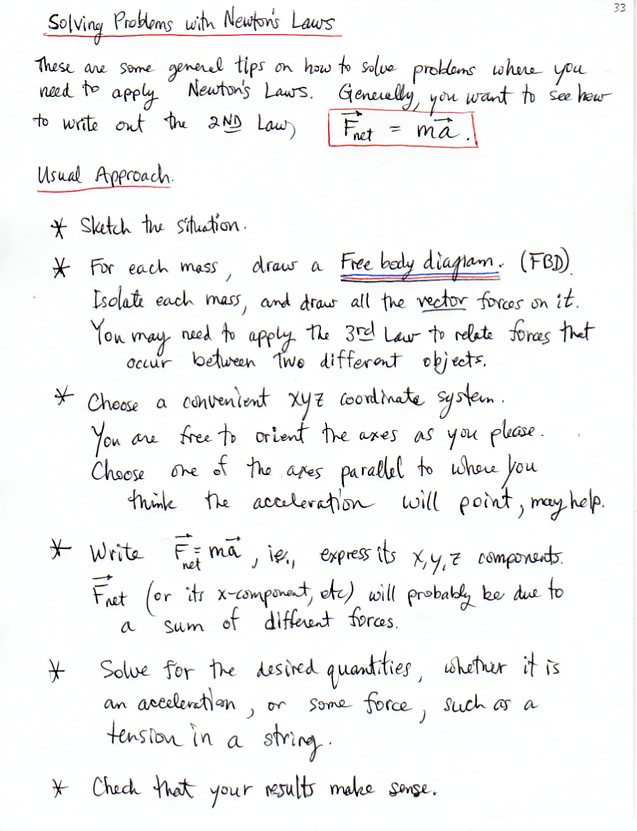 33
Solving Problems with Newton's Laws
These are some general tips on how to solve problems where you
need to apply Newton's Laws. Generally, you want to see how
to write out the 2ND Law, F⃗net = ma⃗.
Usual Approach.
* Sketch the situation.
* For each mass, draw a Free body diagram. (FBD).
Isolate each mass, and draw all the vector forces on it.
You may need to apply the 3rd Law to relate forces that
occur between two different objects.
* Choose a convenient xyz coordinate system.
You are free to orient the axes as you please.
Choose one of the axes parallel to where you
think the acceleration will point, may help.
* Write F⃗net = ma⃗, ie., express its x, y, z components.
F⃗net (or its x-component, etc) will probably be due to
a sum of different forces.
* Solve for the desired quantities, whether it is
an acceleration, or some force, such as a
tension in a string.
* Check that your results make sense.